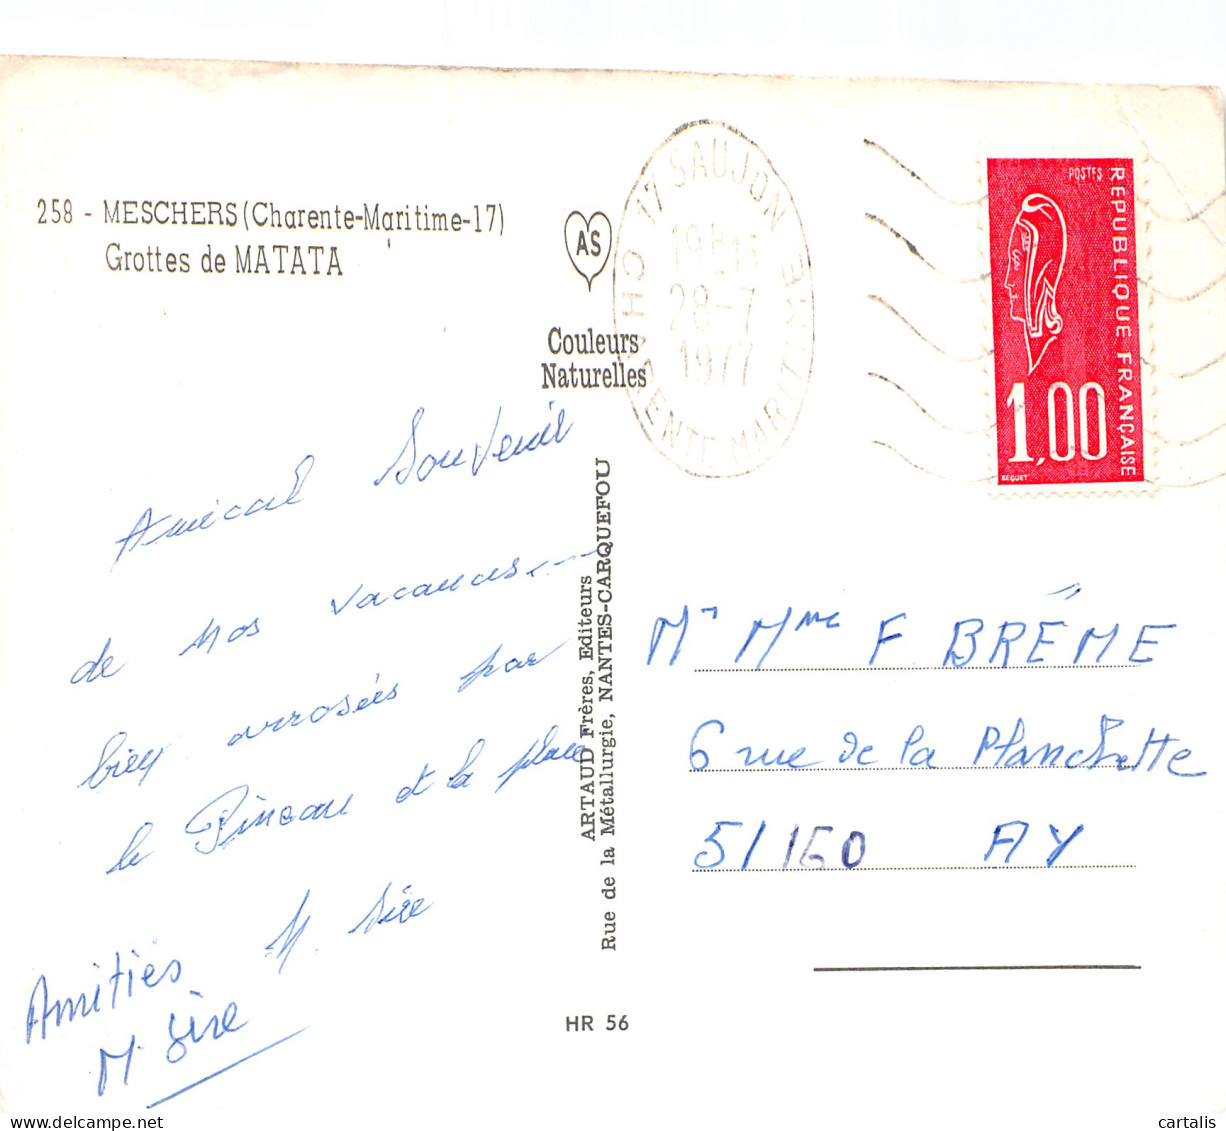 258 - MESCHERS (Charente-Maritime-17)
Grottes de MATATA
AS
Couleurs
Naturelles
17 SAUJON
19H15
28-7
1977
CHARENTE MARITIME
POSTES
REPUBLIQUE FRANÇAISE
1,00
BEQUET
Amical Souvenir
de nos vacances...
bien arrosées par
le Pineau et la pluie
M. Sire
Amitiés
M. Sire
ARTAUD Frères, Editeurs
Rue de la Métallurgie, NANTES-CARQUEFOU
HR 56
Mr Mme F BRÊME
6 rue de la Planchette
51160 AY
cartalis